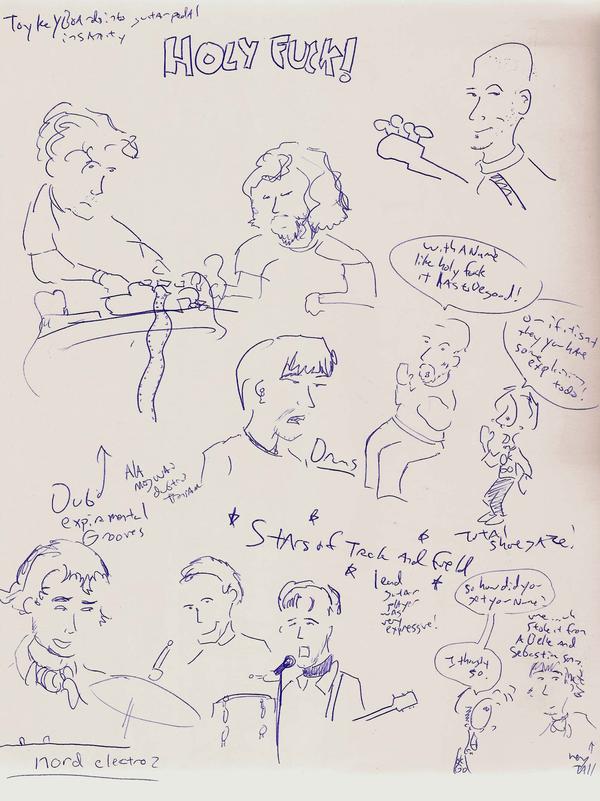 Toy keyBoards into guitar pedal
insanity
HOLY FUCK!
with A Name
like holy fuck
it HAS to be good!
Or if it isnt
they you have
some
explaining
to do
Drums
Dub
expirimental
Grooves
A/A
Stars of Track And Field
Total
shoegaze!
lead
guitar
player
was
very
expressive!
so how did you
get your Name?
we...uh
stole it from
A Belle and
Sebastian song
I thought
so.
very
tall
nord electro 2